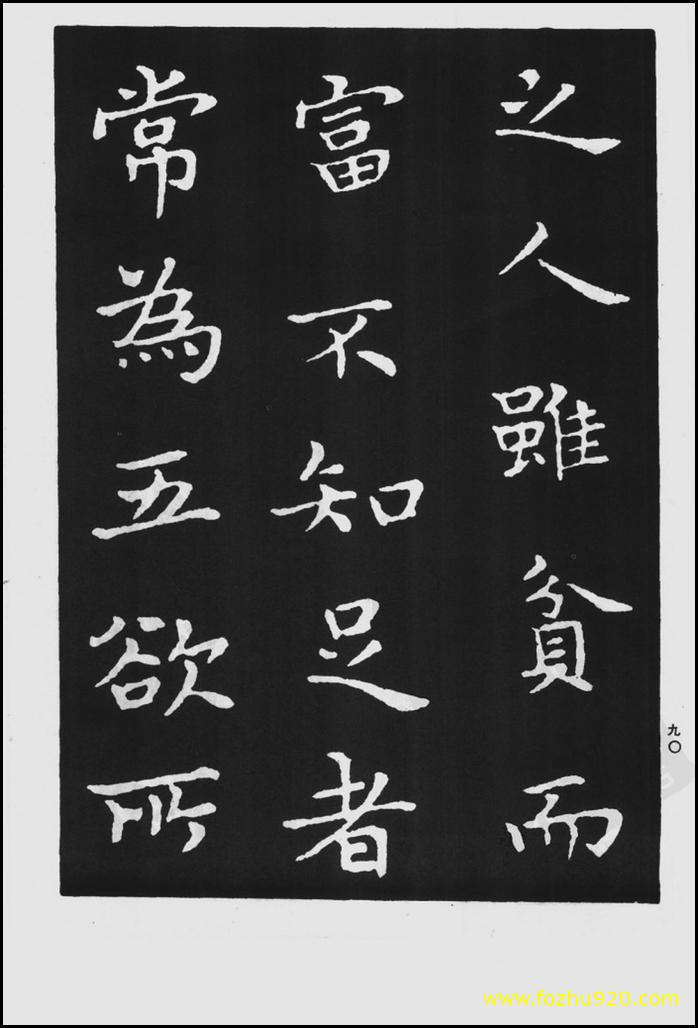 之人雖貧而
富不知足者
常為五欲所
九〇
www.fozhu920.com